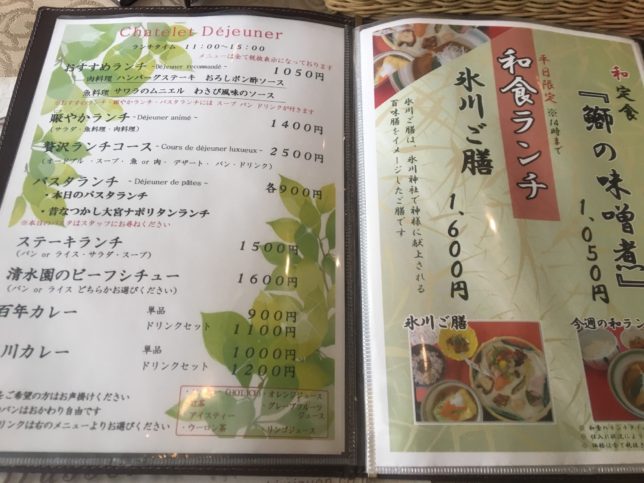 Chatelet Déjeuner
ランチタイム 11:00～15:00
メニューは全て税抜表示になっております
おすすめランチ -Déjeuner recommandé- 1050円
肉料理 ハンバーグステーキ おろしポン酢ソース
魚料理 サワラのムニエル わさび風味のソース
※おすすめランチ・賑やかランチ・パスタランチには スープ パン ドリンクが付きます
賑やかランチ -Déjeuner animé- 1400円
(サラダ・魚料理・肉料理)
贅沢ランチコース -Cours de déjeuner luxueux- 2500円
(オードブル・スープ・魚 or 肉・デザート・パン・ドリンク)
パスタランチ -Déjeuner de pâtes- 各900円
・本日のパスタランチ
・昔なつかし大宮ナポリタンランチ
※本日のパスタはスタッフにお尋ねください
ステーキランチ 1500円
(パン or ライス・サラダ・スープ)
清水園のビーフシチュー 1600円
(パン or ライス どちらかお選びください)
百年カレー 単品 900円
ドリンクセット 1100円
川カレー 単品 1000円
ドリンクセット 1200円
をご希望の方はお声掛けください
パンはおかわり自由です
リンクは右のメニューよりお選びください
(HOT,ICE)
・オレンジジュース
紅茶
・グレープフルーツ
ジュース
アイスティー
・ウーロン茶
・リンゴジュース
平日限定 ※14時まで
和食ランチ
氷川ご膳
1,600円
氷川ご膳は、氷川神社で神様に献上される
百味膳をイメージしたご膳です
和定食
『鰤の味噌煮』
1,050円
氷川ご膳
今週の和ラン